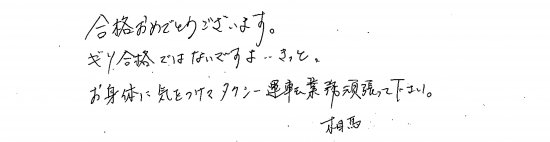 合格おめでとうございます。
ギリ合格ではないですよ‥きっと。
お身体に気をつけてタクシー運転業務頑張って下さい。
相馬